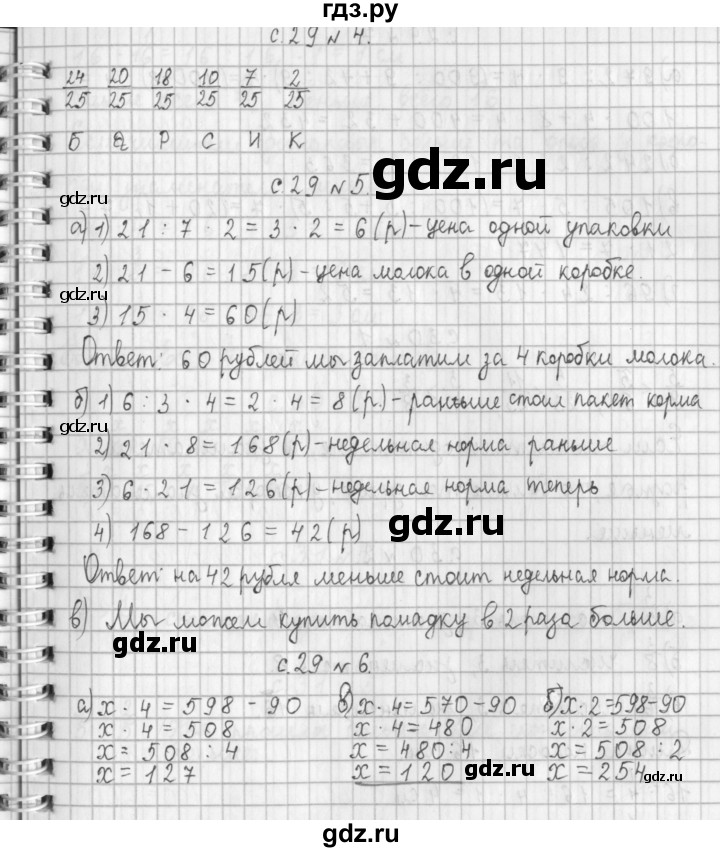 гдз.ру
с.29 № 4.
24/25 20/25 18/25 10/25 7/25 2/25
Б а Р С И К
gdz.ru
с.29 № 5.
gdz.ru
а) 1) 21 : 7 · 2 = 3 · 2 = 6 (р) – цена одной упаковки
2) 21 - 6 = 15 (р) – цена молока в одной коробке.
gdz.ru
3) 15 · 4 = 60 (р)
Ответ: 60 рублей мы заплатим за 4 коробки молока.
б) 1) 6 : 3 · 4 = 2 · 4 = 8 (р.) – раньше стоил пакет корма
gdz.ru
2) 21 · 8 = 168 (р) – недельная норма раньше
3) 6 · 21 = 126 (р) – недельная норма теперь
4) 168 - 126 = 42 (р)
gdz.ru
Ответ: на 42 рубля меньше стоит недельная норма.
в) Мы можем купить помадку в 2 раза больше.
gdz.ru
с.29 № 6.
а) x · 4 = 598 - 90 в) x · 4 = 570 - 90 б) x · 2 = 598 - 90
x · 4 = 508 x · 4 = 480 x · 2 = 508
x = 508 : 4 x = 480 : 4 x = 508 : 2
x = 127 x = 120 gdz.ru x = 254 gdz.ru
gdz.ru